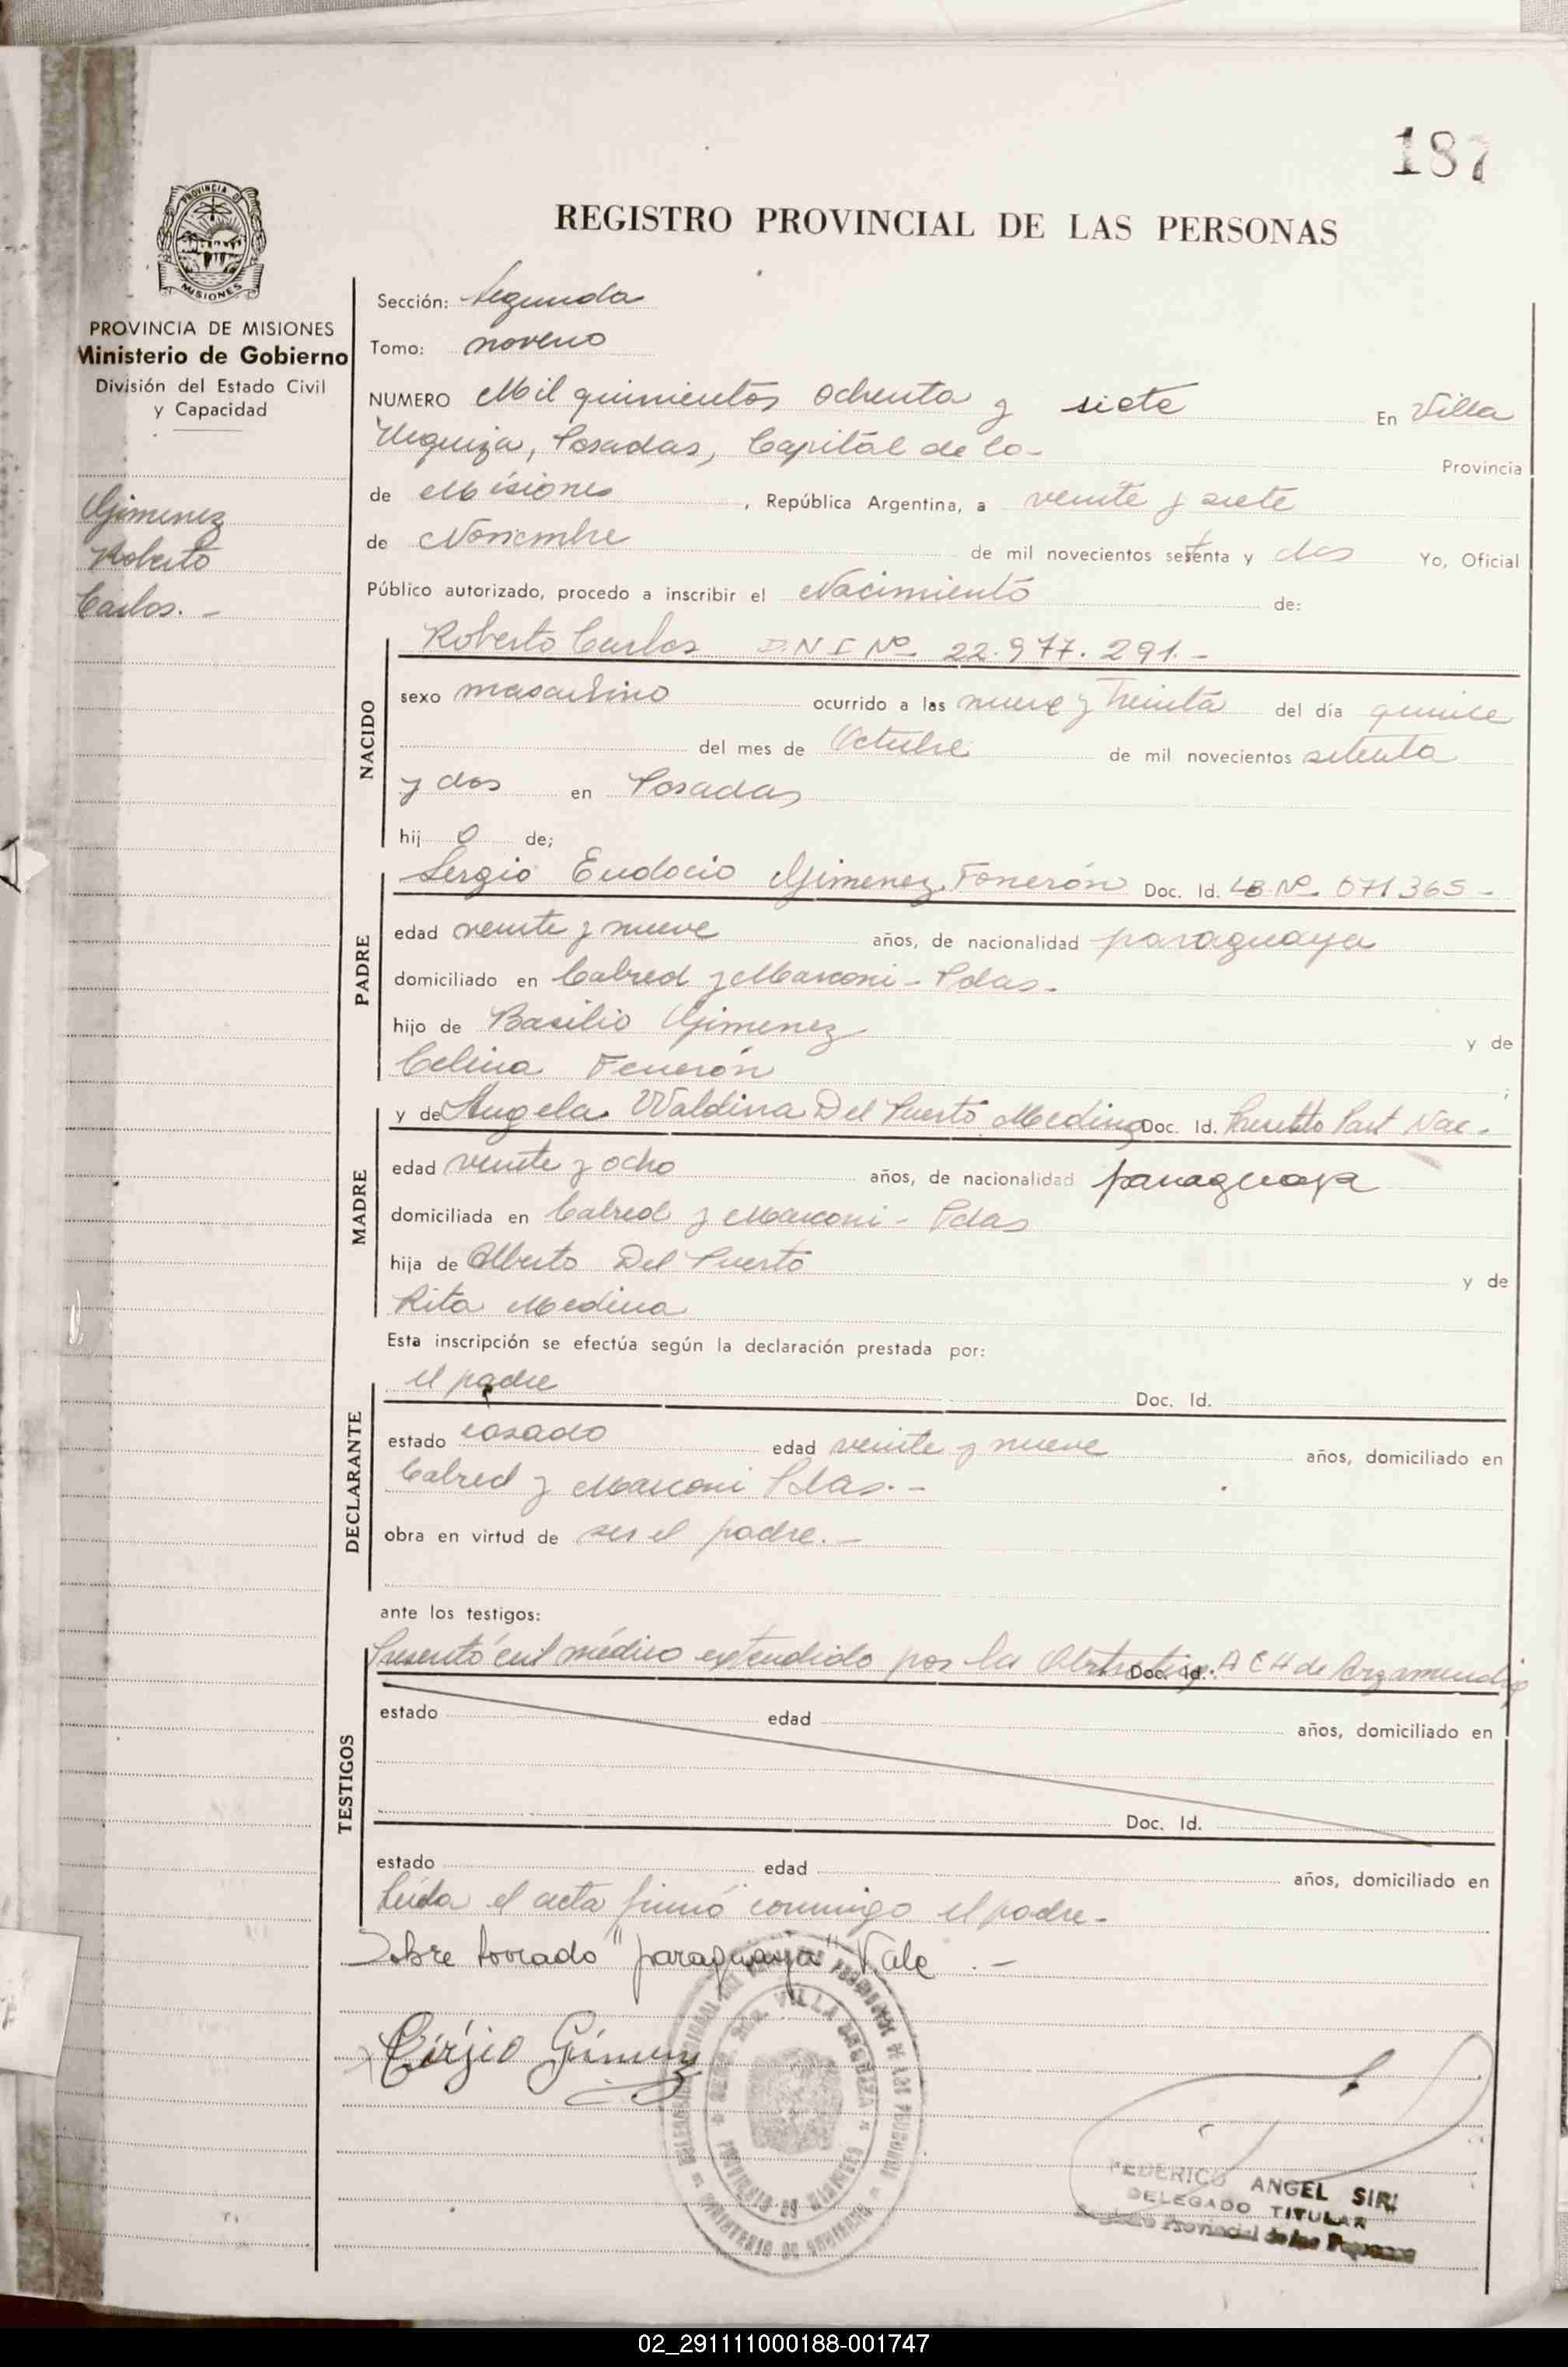 187
REGISTRO PROVINCIAL DE LAS PERSONAS
PROVINCIA DE
MISIONES
PROVINCIA DE MISIONES
Ministerio de Gobierno
División del Estado Civil
y Capacidad
Gimenez
Roberto
Carlos. -
Sección: Segunda
Tomo: noveno
NUMERO Mil quinientos ochenta y siete En Villa
Urquiza, Posadas, Capital de la - Provincia
de Misiones, República Argentina, a veinte y siete
de Noviembre de mil novecientos setenta y dos Yo, Oficial
Público autorizado, procedo a inscribir el Nacimiento de:
NACIDO
Roberto Carlos D.N.I Nº 22.977.291.-
sexo masculino ocurrido a las nueve y treinta del día quince
del mes de Octubre de mil novecientos setenta
y dos en Posadas
hij o de;
PADRE
Sergio Eudocio Gimenez Fonerón Doc. Id. Nº 071365-
edad veinte y nueve años, de nacionalidad paraguaya
domiciliado en Cabred y Marconi - Pdas.
hijo de Basilio Gimenez y de
Celina Fenerón
MADRE
y de Angela Waldina Del Puerto Medina Doc. Id. Presentó Part Nac.
edad veinte y ocho años, de nacionalidad paraguaya
domiciliada en Cabred y Marconi - Pdas
hija de Alberto Del Puerto y de
Rita Medina
Esta inscripción se efectúa según la declaración prestada por:
DECLARANTE
el padre Doc. Id.
estado casado edad veinte y nueve años, domiciliado en
Cabred y Marconi Pdas. -
obra en virtud de ser el padre. -
ante los testigos:
TESTIGOS
Presentó cert médico extendido por la Obstetrica Doc. Id.: A C H de Arzamendia
estado edad años, domiciliado en
Doc. Id.
estado edad años, domiciliado en
Leida el acta firmó conmigo el padre -
Sobre borrado "paraguaya" Vale. -
Sirjio Gimenez
VILLA URQUIZA
FEDERICO ANGEL SIRI
DELEGADO TITULAR
Registro Provincial de las Personas
02_291111000188-001747